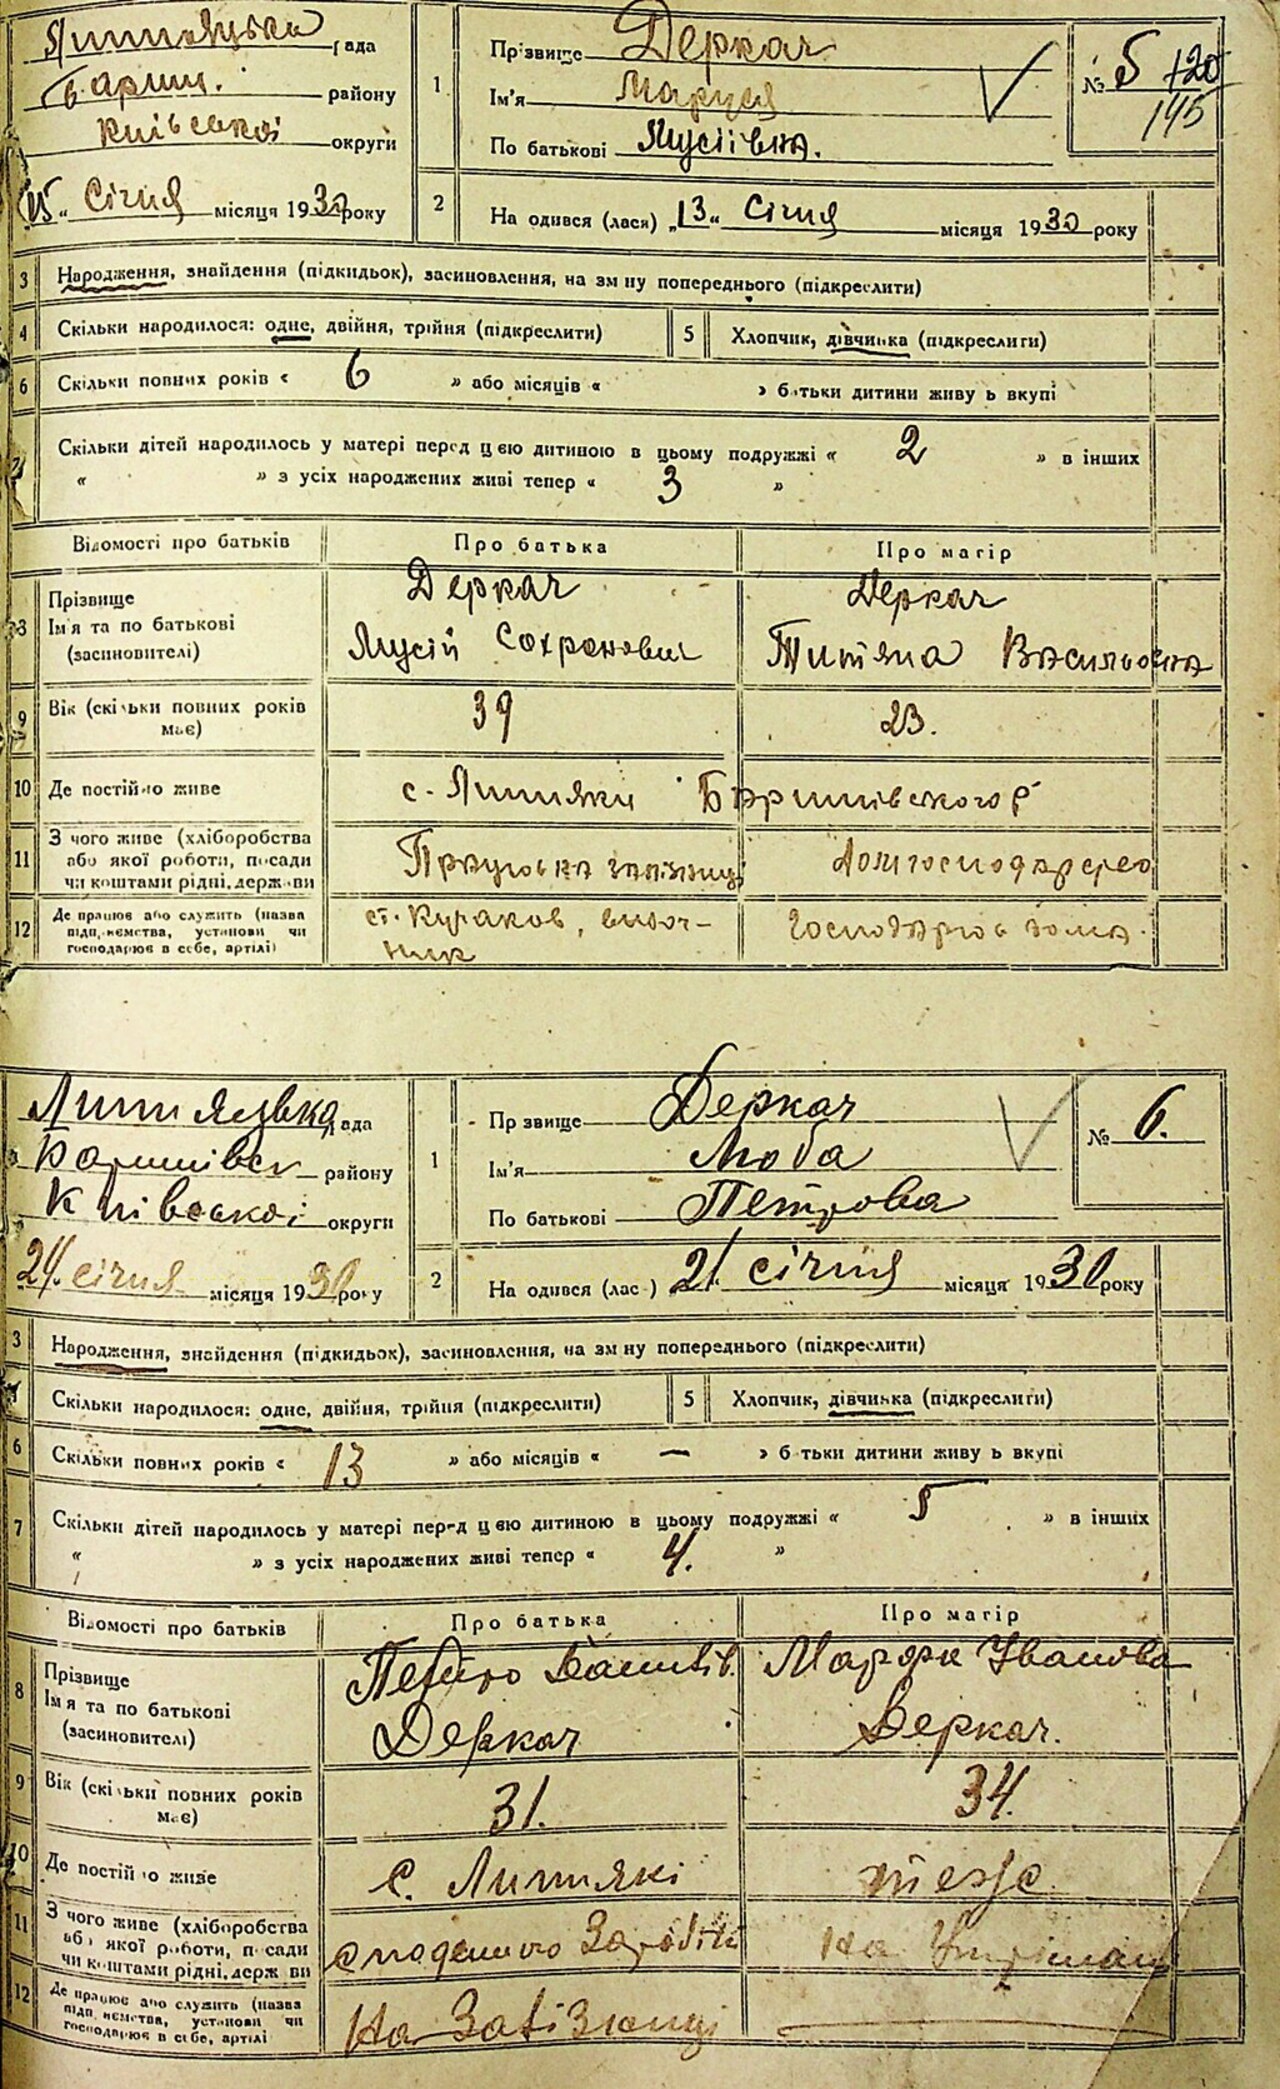 Липняцька рада
Бариш. району
Київської округи
15 „ Січня місяця 1930 року
1
Прізвище Деркач
Ім'я Маруся
По батькові Мусіївна.
№ 5 120
145
2
На одився (лася) „13„ Січня місяця 1930 року
3 Народження, знайдення (підкидьок), засиновлення, на зм ну попереднього (підкреслити)
4 Скільки народилося: одне, двійня, трійня (підкреслити) 5 Хлопчик, дівчинка (підкреслити)
6 Скільки повних років « 6 » або місяців « » б тьки дитини живу ь вкупі
Скільки дітей народилось у матері перед цею дитиною в цьому подружжі « 2 » в інших
« » з усіх народжених живі тепер « 3 »
Відомості про батьків Про батька Про матір
Прізвище Деркач Деркач
Ім'я та по батькові Мусій Сохронович Титяна Васильовна
(засиновителі)
9 Вік (скільки повних років 39 23.
має)
10 Де постійно живе с. Липняки Баришівського р
11 З чого живе (хліборобства
або якої роботи, посади Домгосподарство
чи коштами рідні, держави
12 Де працює або служить (назва ст. Кучаков,
підп. ємства, установи чи Господарює вома.
господарює в себе, артілі)
Липняцька рада
Баришівськ району
Київської округи
24. січня місяця 1930 року
1
Пр звище Деркач
Ім'я Люба
По батькові Петрова
№ 6.
2
На одився (лас ) 21. січня місяця 1930 року
3 Народження, знайдення (підкидьок), засиновлення, на зм ну попереднього (підкреслити)
Скільки народилося: одне, двійня, трійня (підкреслити) 5 Хлопчик, дівчинка (підкреслити)
6 Скільки повних років « 13 » або місяців « — » б тьки дитини живу ь вкупі
7 Скільки дітей народилось у матері перед цею дитиною в цьому подружжі « 5 » в інших
« » з усіх народжених живі тепер « 4. »
Відомості про батьків Про батька Про матір
8 Прізвище Петро Васильів. Марфа Уванова
Ім'я та по батькові Деркач Деркач.
(засиновителі)
9 Вік (скільки повних років 31. 34.
має)
10 Де постій о живе с. Липнякі теж
11 З чого живе (хліборобства
аб якої роботи, п сади на
чи коштами рідні, держ ви
12 Де працює або служить (назва На Залізниці
підп. ємства, установи чи
господарює в себе, артілі